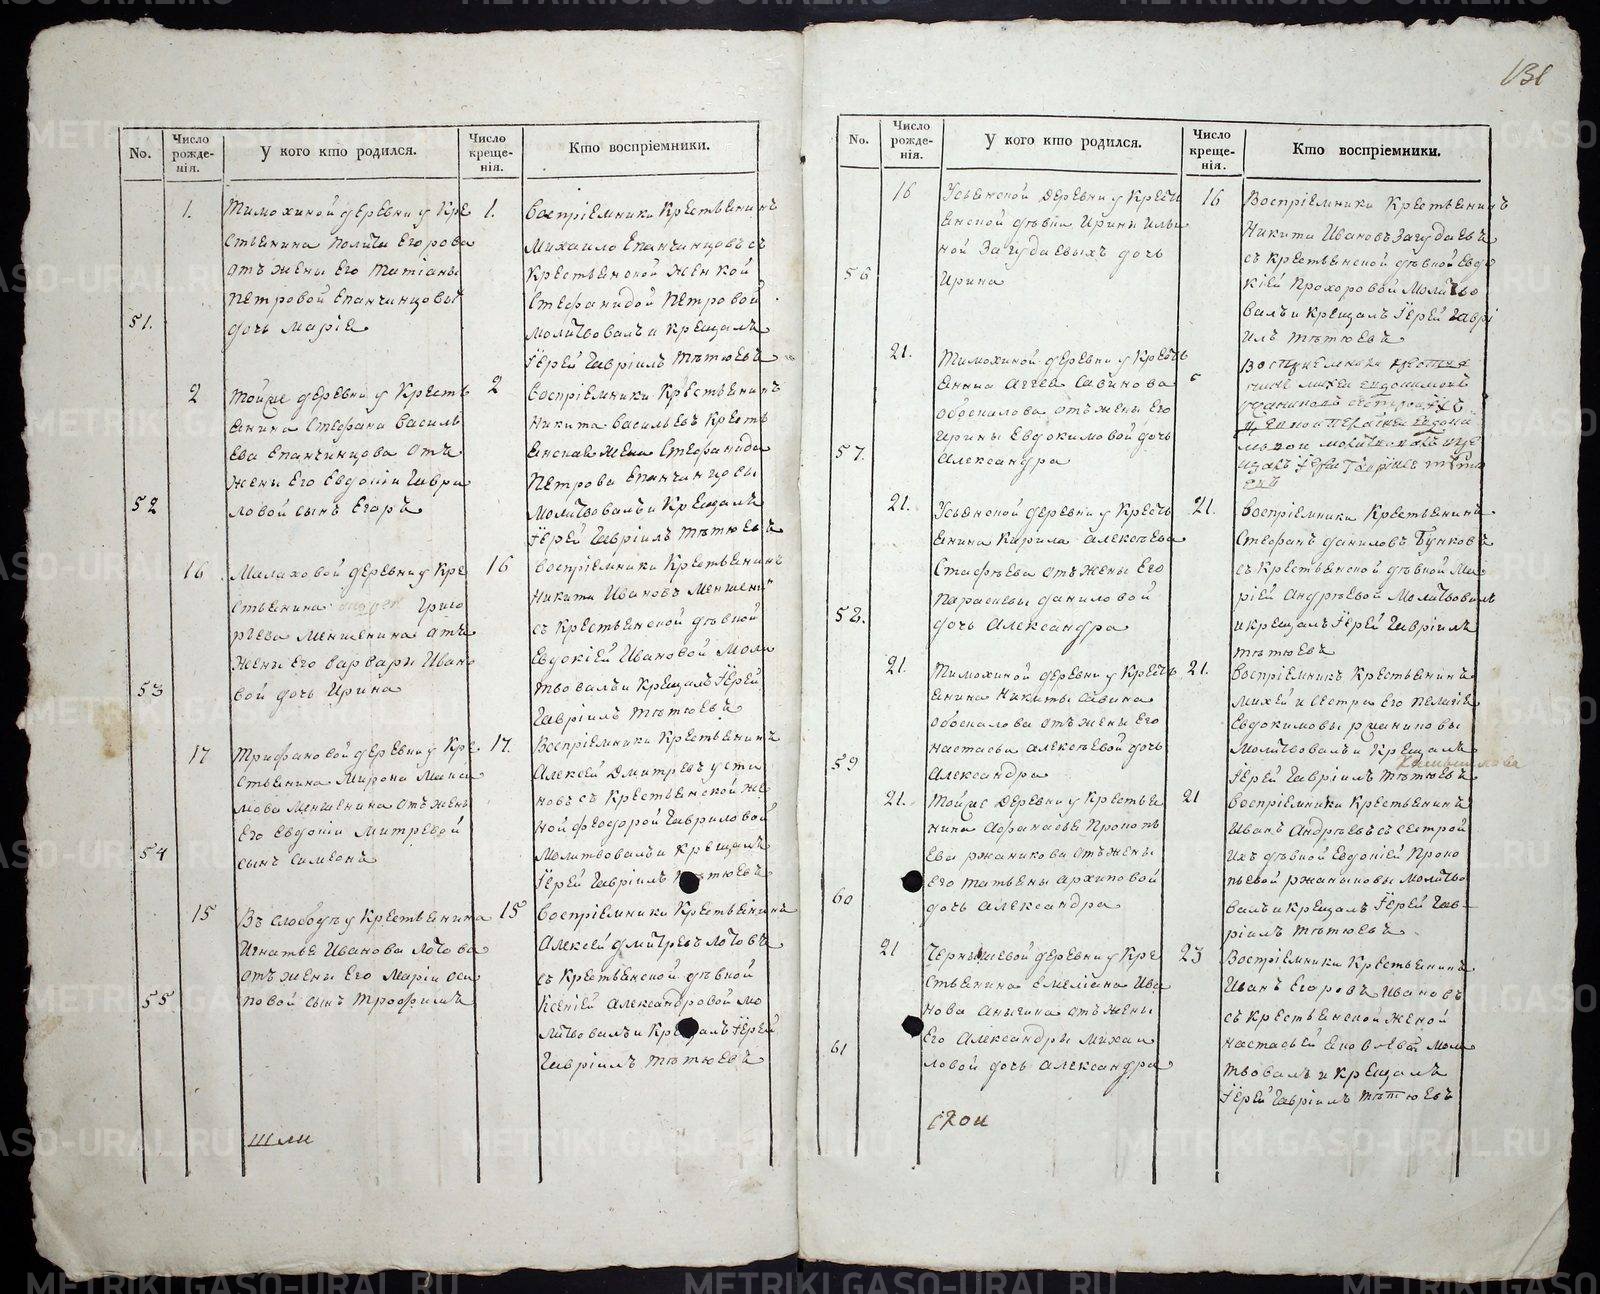 131
No.
Число рожде-нія.
У кого кто родился.
Число креще-нія.
Кто воспріемники.
51.
1.
Тимохиной деревни у кре
стьянина Егорова
отъ жены его татіаны
петровой Епанчинцовы
дочь марія
1.
воспріемники крестьянинъ
михаило Епанчинцовъ съ
крестьянской женкой
Стефанидой петровой
молитвовалъ и крещалъ
Іерей Гавріилъ тѣтюевъ
52
2
тойже деревни у кресть
янина Стефана василь
ева Епанчинцова отъ
жены его Евдокіи Гаври
ловой сынъ Егоръ
2
воспріемники крестьянинъ
никита васильевъ кресть
янская жена Стефанида
петрова Епанчинцовы
молитвовалъ и крещалъ
Іерей Гавріилъ тѣтюевъ
53
16
Малаховой деревни у кре
стьянина Григо
рьева меншенина отъ
жены его варвары Ивано
вой дочь Ирина
16
воспріемники крестьянинъ
никита Ивановъ меншенинъ
съ крестьянской дѣвкой
Евдокіей Ивановой моли
твовалъ и крещалъ Іерей
Гавріилъ тѣтюевъ
54
17
Трифановой деревни у кре
стьянина мирона
меншенина отъ жены
его Евдокіи митревой
сынъ симеонъ
17.
Воспріемники крестьянинъ
Алексей дмитревъ усти
новъ съ крестьянской же
ной феодорой Гавриловой
молитвовалъ и крещалъ
Іерей Гавріилъ тѣтюевъ
55
15
Въ слободѣ у крестьянина
Игнатья Иванова
отъ жены его маріи оси
повой сынъ трофимъ
15
воспріемники крестьянинъ
Алексей дмитревъ
съ крестьянской дѣвкой
Ксеніей Александровой мо
литвовалъ и крещалъ Іерей
Гавріилъ тѣтюевъ
шли
No.
Число рожде-нія.
У кого кто родился.
Число креще-нія.
Кто воспріемники.
56
16
Усьянской деревни у кресть
янской дѣвки Ирины Ильи
ной Загудаевыхъ дочь
Ирина
16
Воспріемники крестьянинъ
Никита Ивановъ Загудаевъ
съ крестьянской дѣвкой Евдо
кіей Прохоровой молитво
валъ и крещалъ Іерей Гаврі
илъ тѣтюевъ
57.
21.
Тимохиной деревни у кресть
янина Агѣя Савинова
обоскалова отъ жены его
Ирины Евдокимовой дочь
Александра
Воспріемники
58.
21.
Усьянской деревни у кресть
янина карила Алексѣева
Стафѣева отъ жены его
параскевы даниловой
дочь Александра
21.
воспріемники крестьянинъ
Стефанъ даниловъ Бунковъ
съ крестьянской дѣвкой ма
ріей Андрѣевой молитвовалъ
и крещалъ Іерей Гавріилъ
тѣтюевъ
59
21.
Тимохиной деревни у кресть
янина никиты савина
обоскалова отъ жены его
настасьи алексѣевой дочь
Александра
21.
воспріемникъ крестьянинъ
михей и сестра его пелагія
Евдокимовы ржаниковы
молитвовалъ и крещалъ
Іерей Гавріилъ тѣтюевъ
60
21.
Тойже деревни у крестья
нина Афанасья Прокопь
ева ржаникова отъ жены
его татьяны архиповой
дочь Александра
21
воспріемники крестьянинъ
Иванъ Андрѣевъ съ сестрой
ихъ дѣвкой Евдокіей Проко
пьевой ржаниковы молитво
валъ и крещалъ Іерей Гав-
ріилъ тѣтюевъ
61
21
Чернышевой деревни у кре
стьянина Емеліана Ива
нова Аныгина отъ жены
его Александры михаи
ловой дочь Александра
23
Воспріемники крестьянинъ
Иванъ Егоровъ Ивановъ
съ крестьянской женой
настасьей моли
твовалъ и крещалъ
Іерей Гавріилъ тѣтюевъ
METRIKI.GASO-URAL.RU